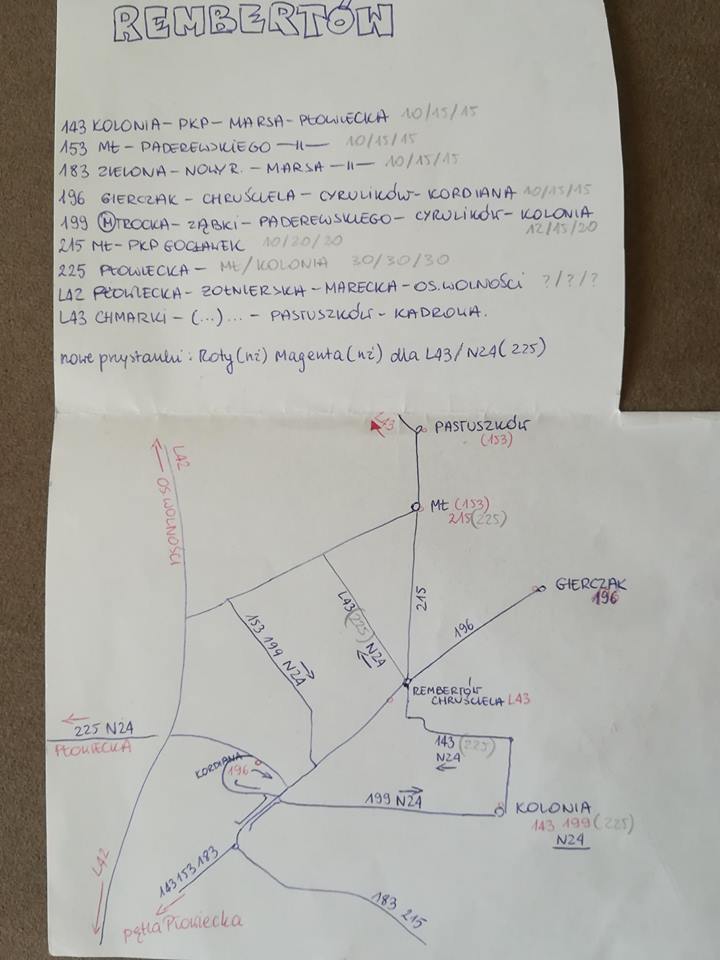 REMBERTÓW
143 KOLONIA - PKP - MARSA - PŁOWIECKA 10/15/15
153 MŁ - PADEREWSKIEGO -||- 10/15/15
183 ZIELONA - NOWY R. - MARSA -||- 10/15/15
196 GIERCZAK - CHRUŚCIELA - CYRULIKÓW - KORDIANA 10/15/15
199 Ⓜ TROCKA - ZĄBKI - PADEREWSKIEGO - CYRULIKÓW - KOLONIA
12/15/20
215 MŁ - PKP GOCŁAWEK 10/20/20
225 PŁOWIECKA - MŁ/KOLONIA 30/30/30
L42 PŁOWIECKA - ŻOŁNIERSKA - MARECKA - OS.WOLNOŚCI ?/?/?
L43 CHMARKI - (...)... - PASTUSZKÓW - KADROWA.
nowe przystanki: Roty(nż) Magenta(nż) dla L43/N24(225)
L43
PASTUSZKÓW
(153)
L42
OS WOLNOŚCI
MŁ (153)
215(225)
GIERCZAK
196
L43(225) N24
215
196
153 199 N24
REMBERTÓW
CHRUŚCIELA L43
225 N24
PŁOWIECKA
143 (225)
N24
KORDIANA
196
199 N24
KOLONIA
143 199(225)
N24
143 153 183
L42
183 215
pętla Płowiecka